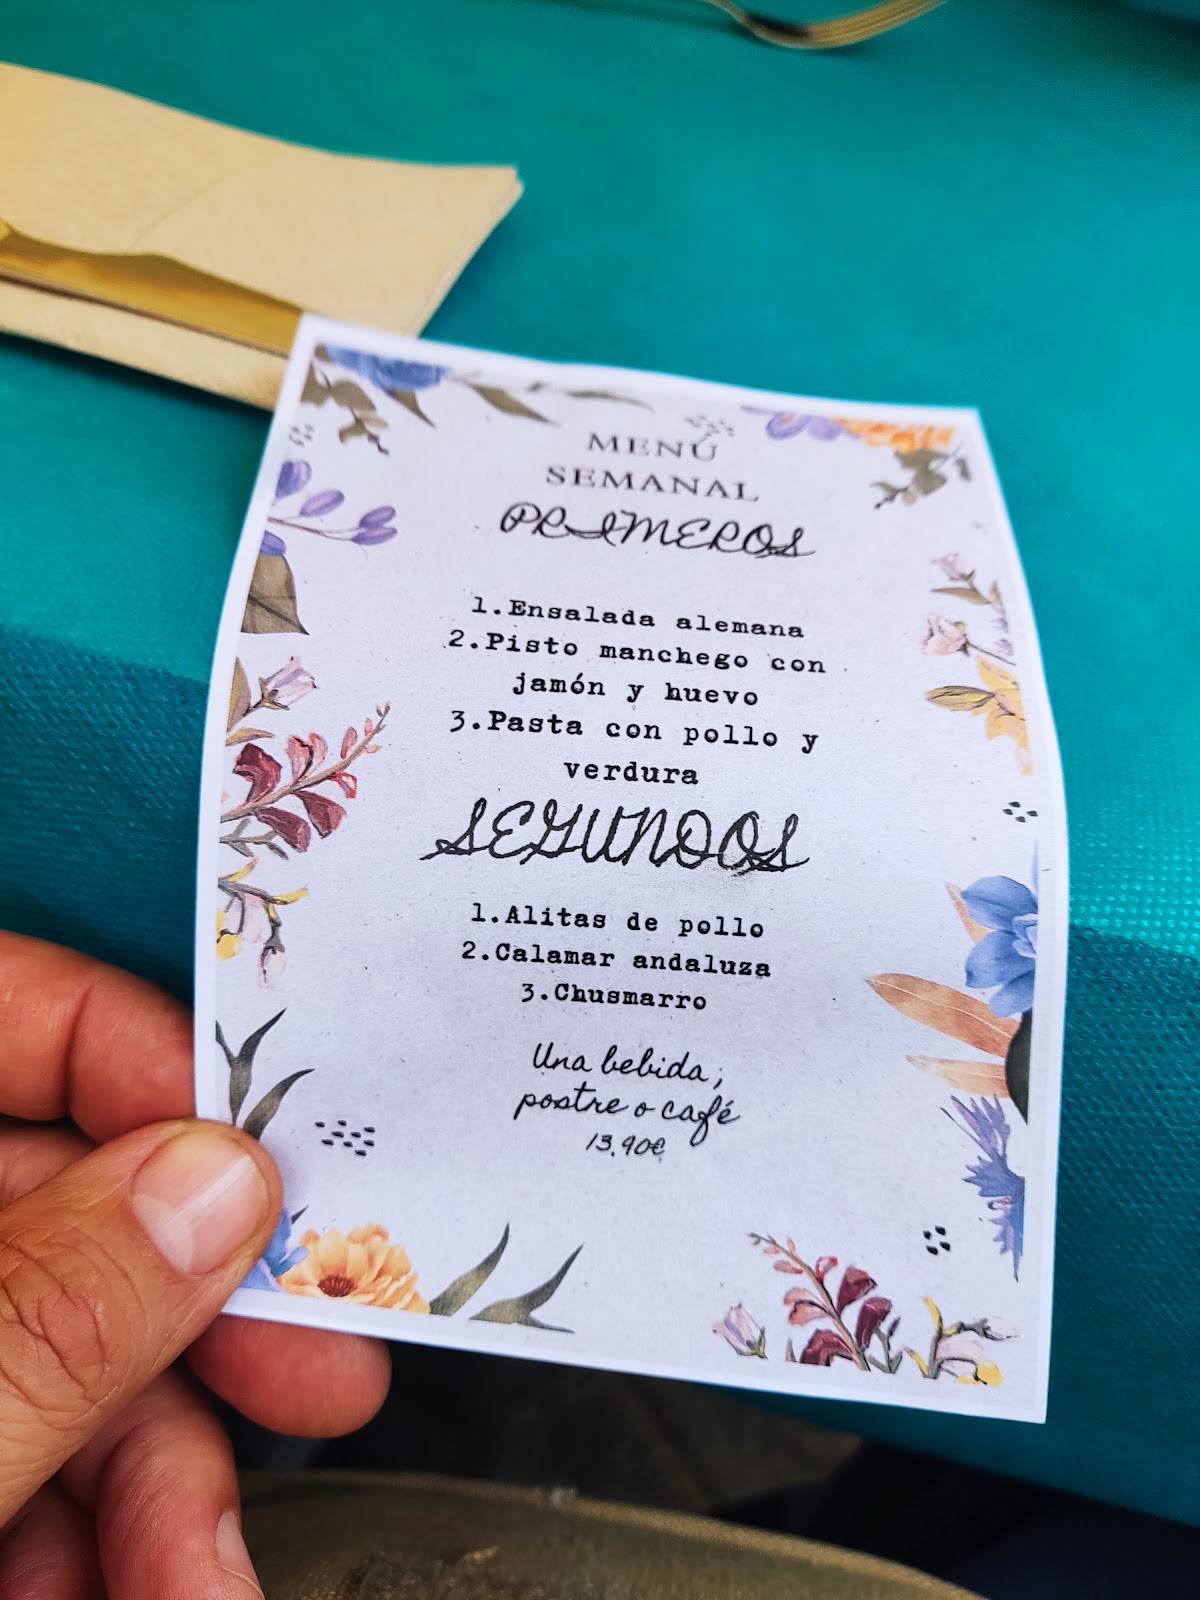 MENÚ
SEMANAL
PRIMEROS
1.Ensalada alemana
2.Pisto manchego con
jamón y huevo
3.Pasta con pollo y
verdura
SEGUNDOS
1.Alitas de pollo
2.Calamar andaluza
3.Chusmarro
Una bebida,
postre o café
13,90€